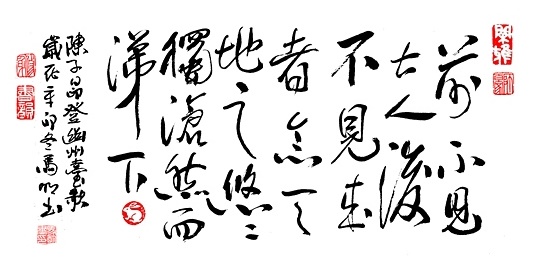 前不見
古人後
不見来
者念天
地之悠々
獨滄然而
涕下
陳子昂登幽州臺歌
歲在辛卯冬